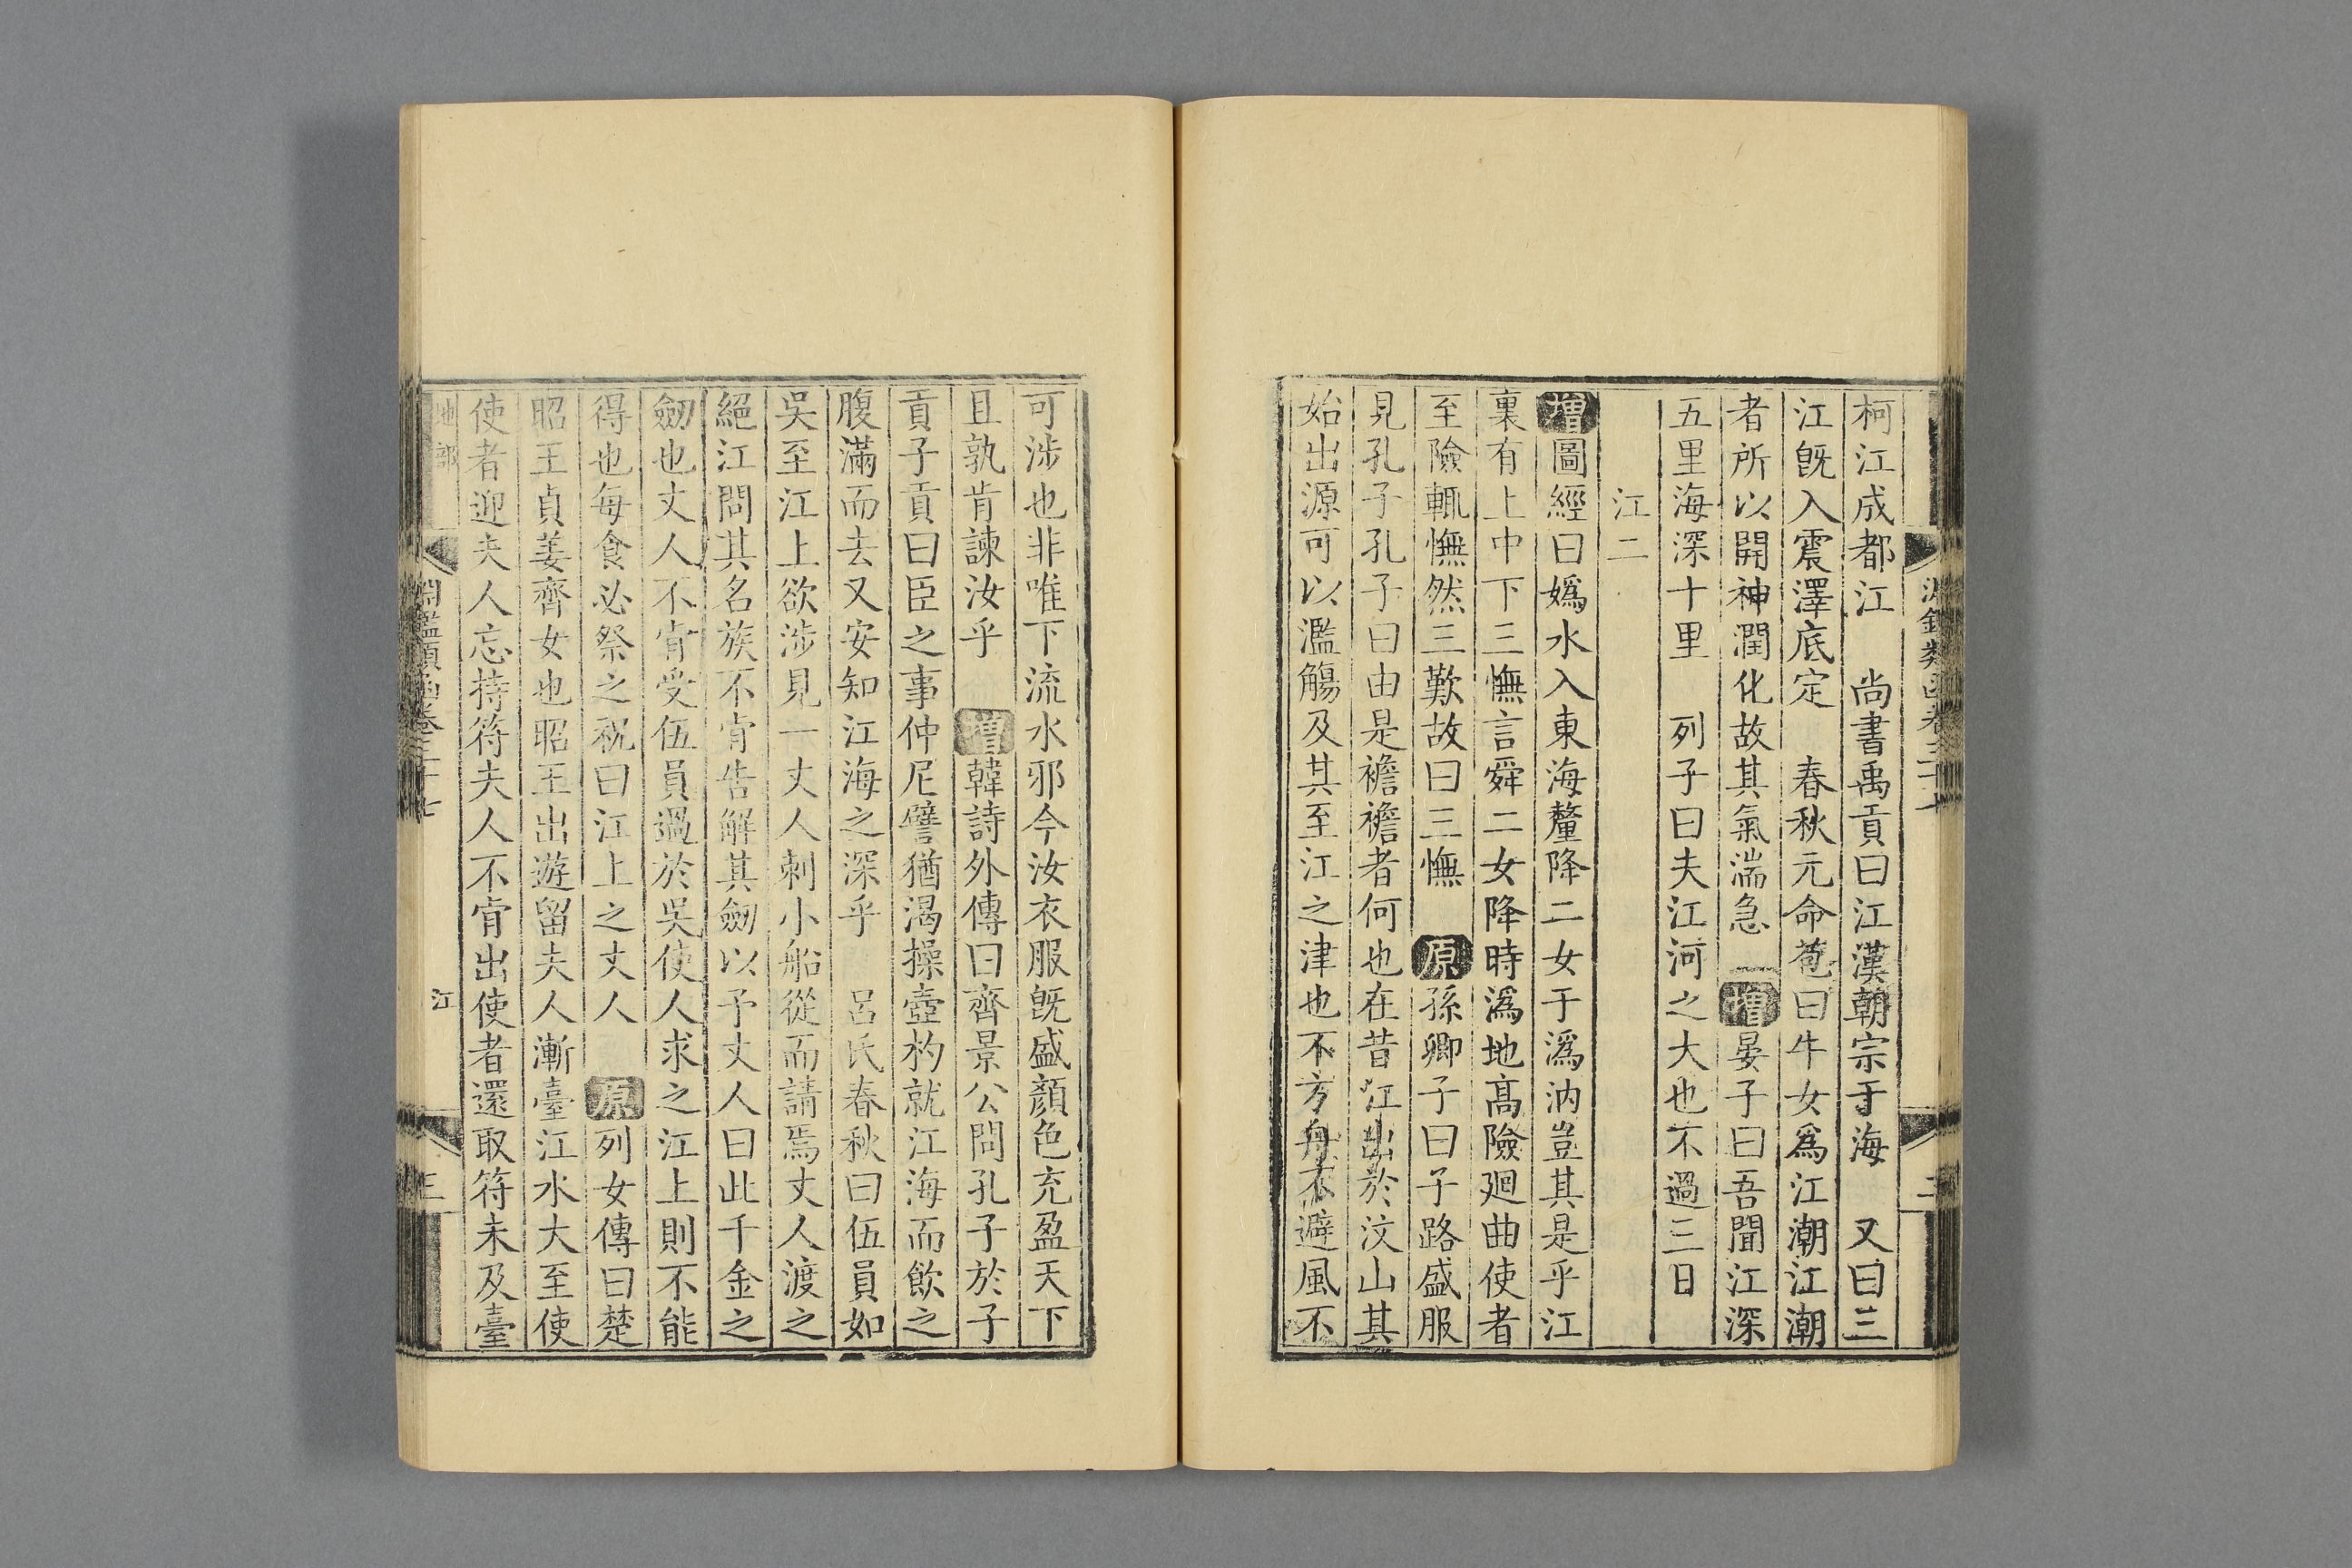 柯江成都江　尚書禹貢曰江漢朝宗于海　又曰三
江旣入震澤底定　春秋元命苞曰牛女爲江潮江潮
者所以開神潤化故其氣湍急　增晏子曰吾聞江深
五里海深十里　列子曰夫江河之大也不過三日
江二
增圖經曰嬀水入東海釐降二女于潙汭豈其是乎江
裏有上中下三憮言舜二女降時潙地高險廻曲使者
至險輒憮然三歎故曰三憮　原孫卿子曰子路盛服
見孔子孔子曰由是襜襜者何也在昔江出於汶山其
始出源可以濫觴及其至江之津也不方舟不避風不
可涉也非唯下流水邪今汝衣服旣盛顏色充盈天下
且孰肯諫汝乎　增韓詩外傳曰齊景公問孔子於子
貢子貢曰臣之事仲尼譬猶渴操壺杓就江海而飲之
腹滿而去又安知江海之深乎　呂氏春秋曰伍員如
吳至江上欲涉見一丈人刺小船從而請焉丈人渡之
絕江問其名族不肯告解其劒以予丈人曰此千金之
劒也丈人不肯受伍員過於吳使人求之江上則不能
得也每食必祭之祝曰江上之丈人　原列女傳曰楚
昭王貞姜齊女也昭王出遊留夫人漸臺江水大至使
使者迎夫人忘持符夫人不肯出使者還取符未及臺
地部
淵鑑類函卷三十七
江
三